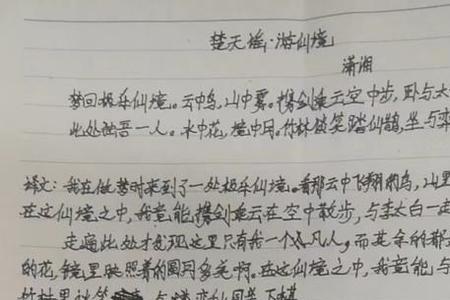 楚天谣·游仙境
潇湘
梦回极乐仙境。云中鸟,山中雾。携剑乘云空中步,卧与太
此处独吾一人。水中花,镜中月。竹林谈笑踏仙鹊,坐与弈
译文:我在做梦时来到了一处极乐仙境。看那云中飞翔的鸟,山里
在这仙境之中,我竟能携剑乘云在空中散步,与李太白一起
走遍此处才发现这里只有我一个凡人,而其余的都
的花,镜里映照着的圆月多美啊。在这仙境之中,我竟能与
竹林里谈笑 与 弈仙同差下棋